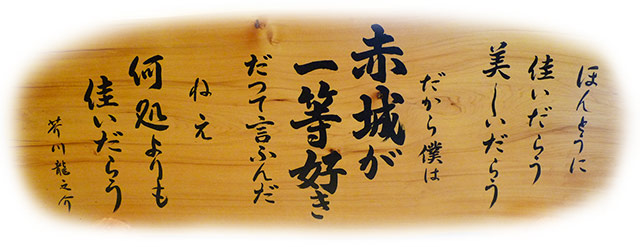 ほんとうに
佳いだらう
美しいだらう
だから僕は
赤城が
一等好き
だつて言ふんだ
ねえ
何処よりも
佳いだらう
芥川龍之介